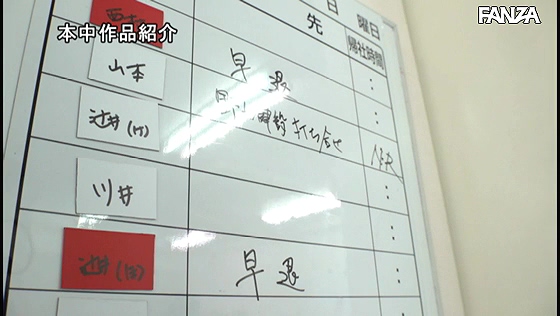 FANZA
本中作品紹介
日 曜日
先 帰社時間
山本 早退 :
辻井(竹) 打ち合せ NR
川井 :
辻井(田) 早退 :